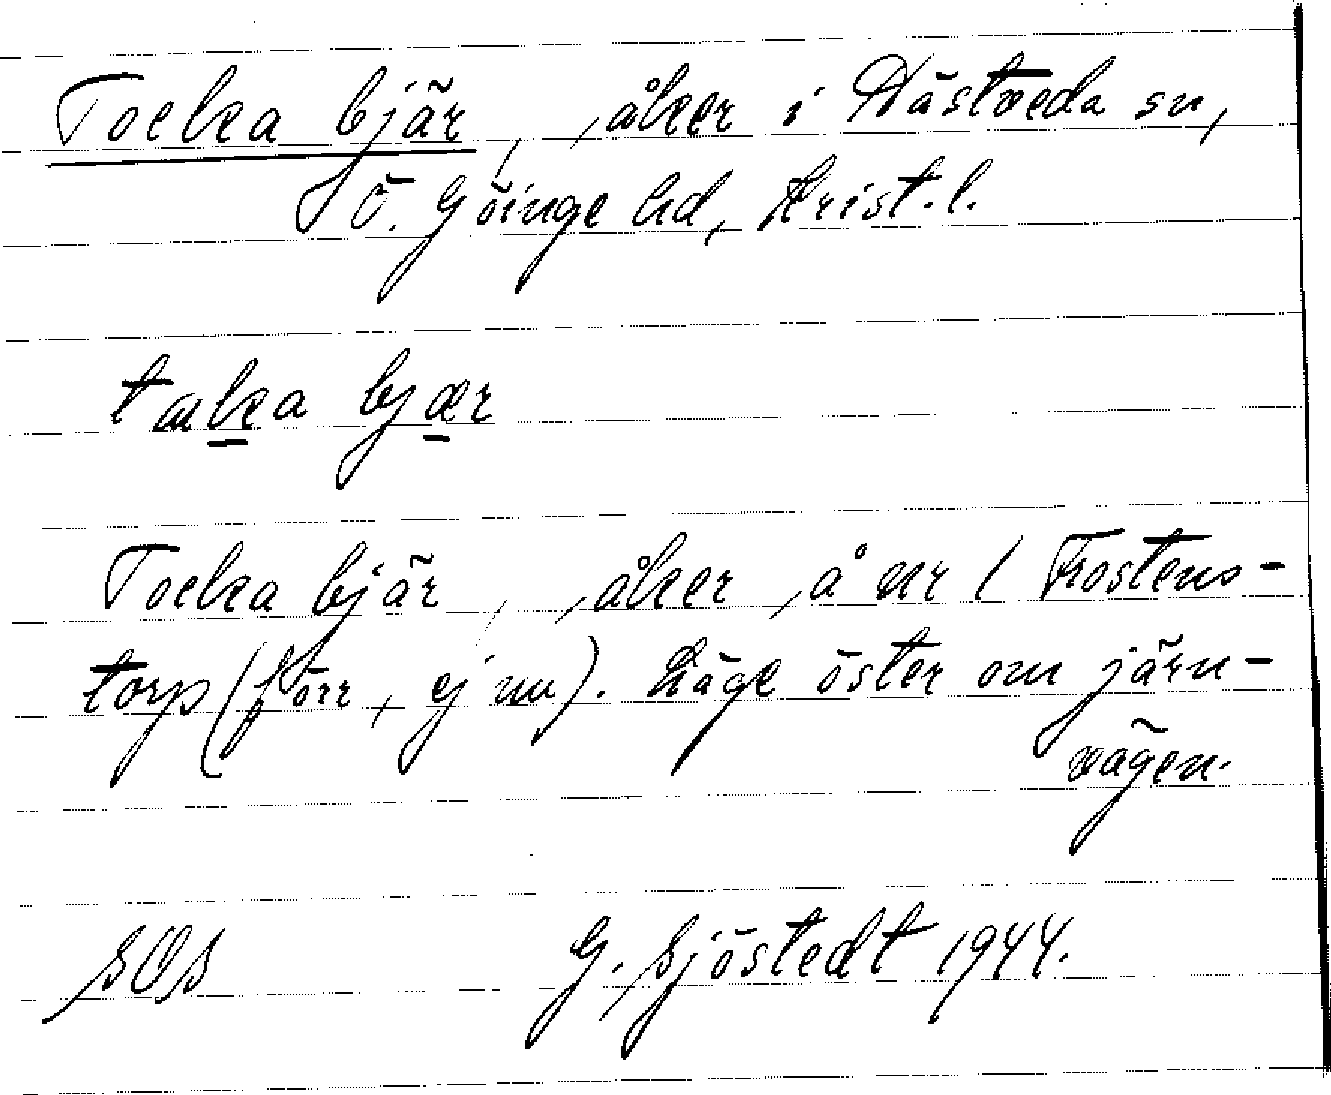 Tocka bjär, åker i Hästveda sn,
Ö. Göinge hd, Krist. l.
tαka bjær
Tocka bjär, åker, å nr 1 Frostens-
torp (förr, ej nu). Läge öster om järn-
vägen.
SOS G. Sjöstedt 1944.